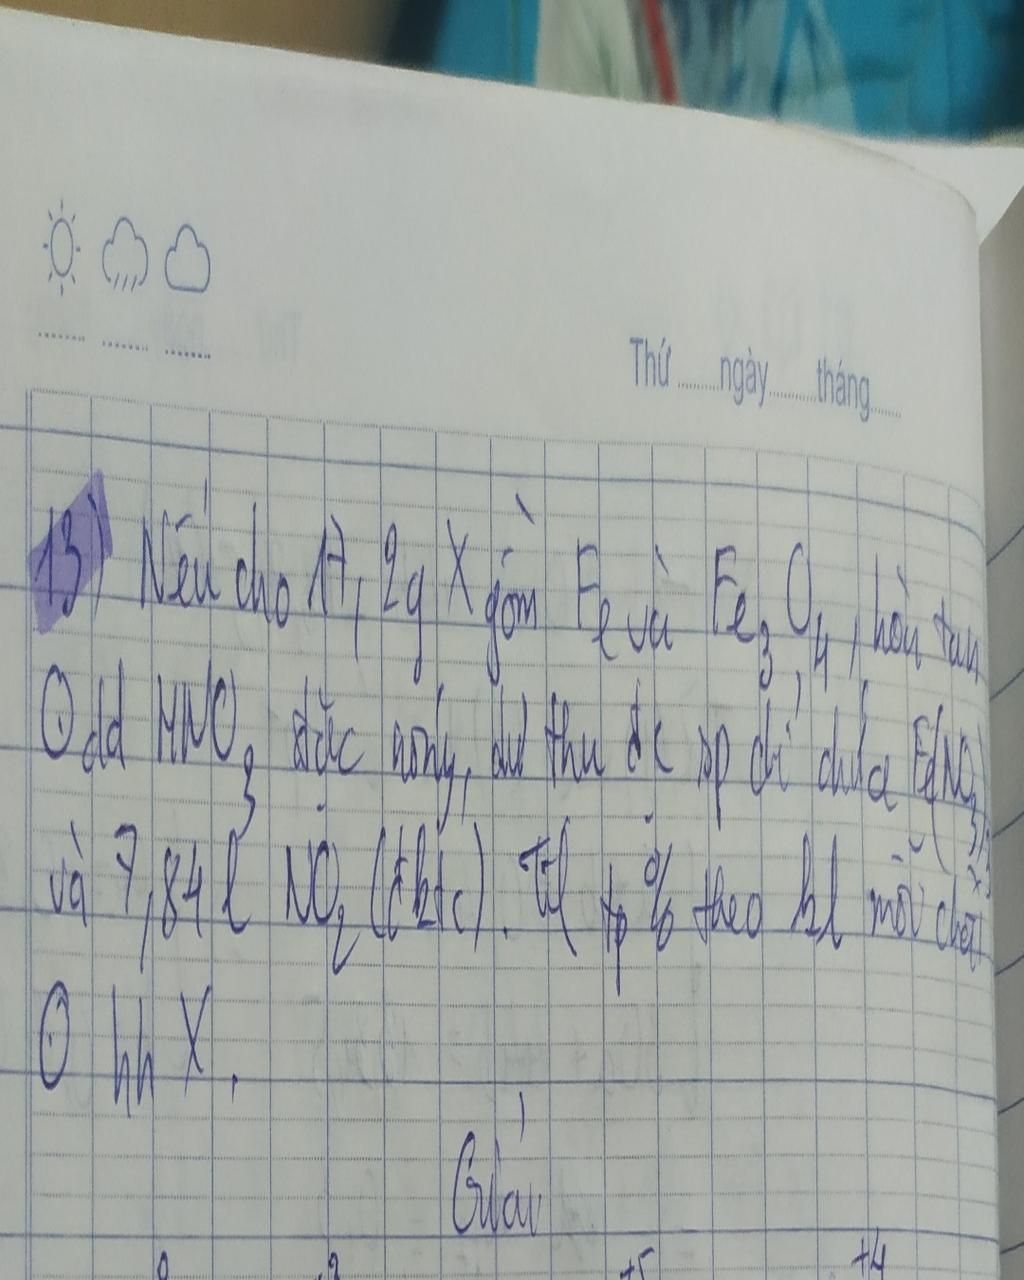 Thứ ngày tháng
13) Nếu cho 17,2g X gồm Fe và Fe3O4, hòa tan
⊙ dd HNO3 đặc nóng, dư thu đc sp chỉ chứa Fe(NO3)3
và 7,84 l NO2 (đktc). Tỉ tp % theo kl mỗi chất
⊙ hh X.
Giải
0 +5 +4